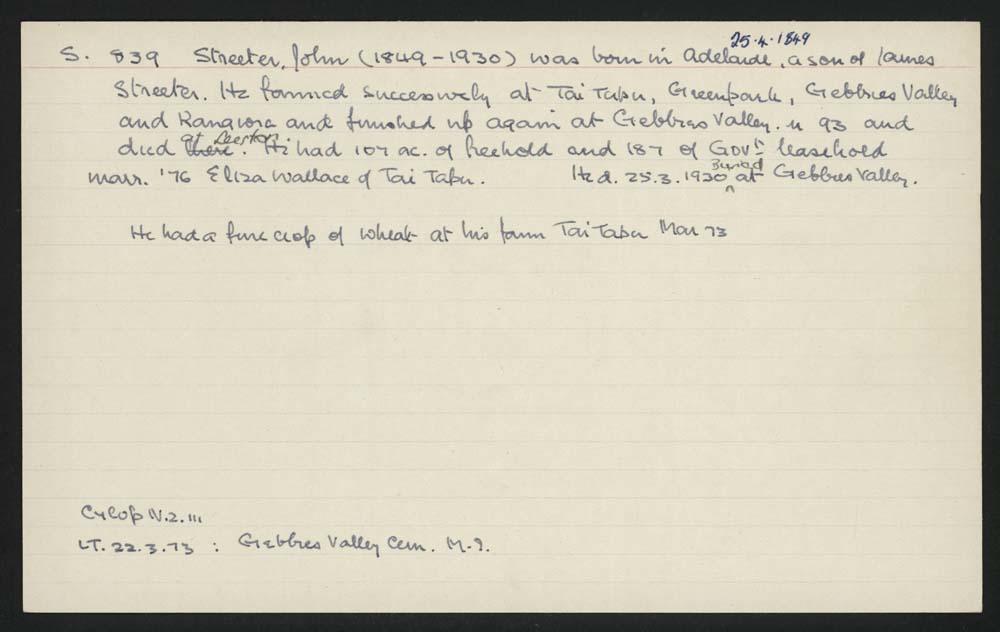 25.4.1849
S. 839 Streeter, John (1849-1930) was born in Adelaide, a son of James
Streeter. He farmed successively at Tai Tapu, Greenpark, Gebbies Valley
and Rangiora and finished up again at Gebbies Valley. in 93 and
at Leeston
died there. He had 107 ac. of freehold and 187 of Govt leasehold
marr. '76 Eliza Wallace of Tai Tapu. He d. 25.3.1930 Buried at Gebbies Valley.
He had a fine crop of wheat at his farm Tai Tapu Mar 73
Cyclop N.2.111
LT. 22.3.73 : Gebbies Valley Cem. M.I.